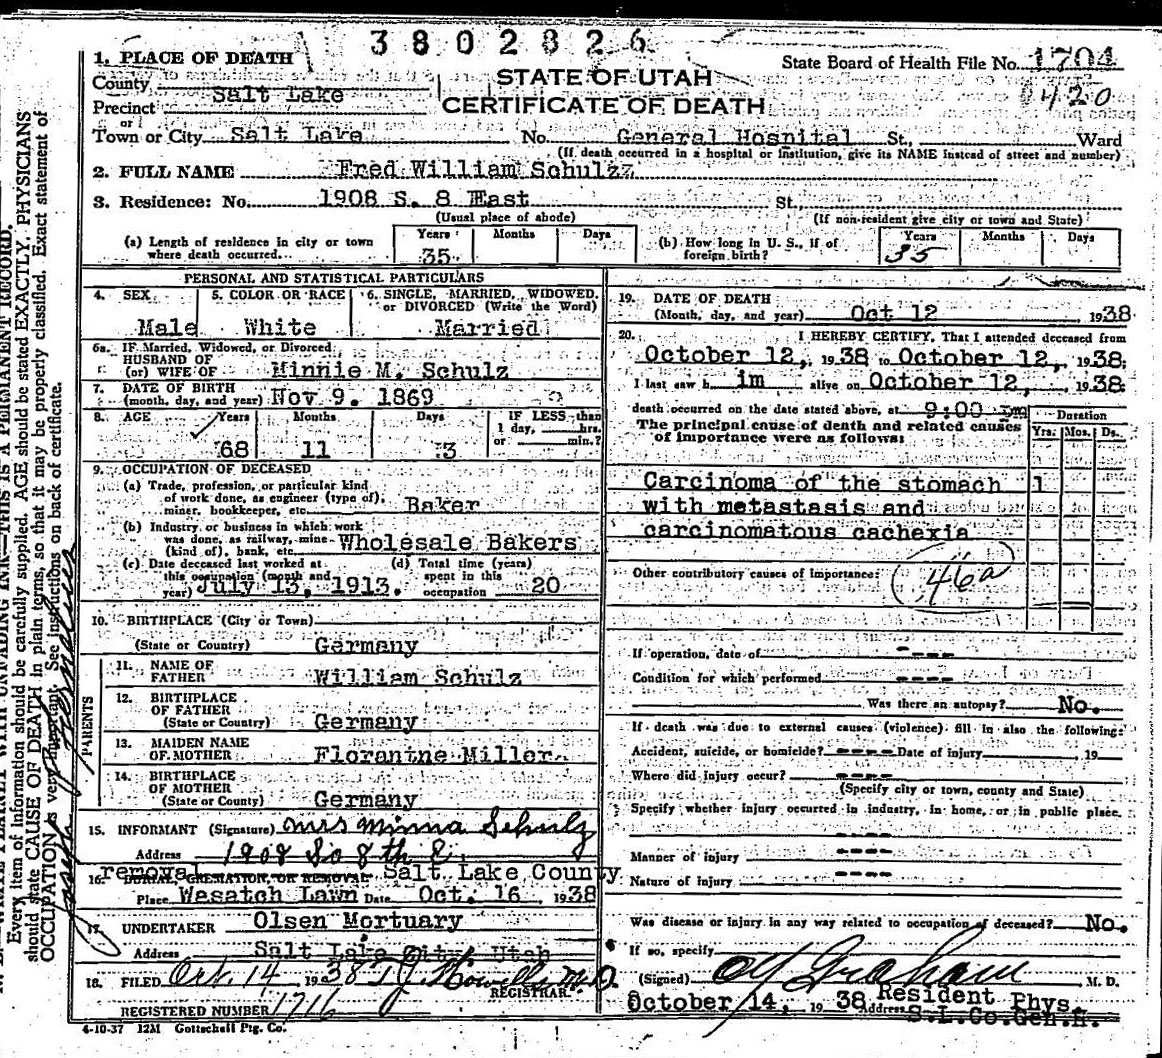 3802826
1. PLACE OF DEATH
State Board of Health File No. 1704
STATE OF UTAH
County Salt Lake
420
Precinct
CERTIFICATE OF DEATH
or
Town or City Salt Lake No. General Hospital St., Ward
(If death occurred in a hospital or institution, give its NAME instead of street and number)
2. FULL NAME Fred William Schulzz
3. Residence: No. 1908 S. 8 East St.,
(Usual place of abode) (If non-resident give city or town and State)
(a) Length of residence in city or town where death occurred. Years 35 Months Days
(b) How long in U. S., if of foreign birth? Years 35 Months Days
PERSONAL AND STATISTICAL PARTICULARS
4. SEX 5. COLOR OR RACE 6. SINGLE, MARRIED, WIDOWED, or DIVORCED (Write the Word)
Male White Married
6a. IF Married, Widowed, or Divorced
HUSBAND OF
(or) WIFE OF Minnie M. Schulz
7. DATE OF BIRTH
(month, day, and year) Nov 9. 1869
8. AGE Years Months Days IF LESS than
1 day, hrs.
or min.?
68 11 3
9. OCCUPATION OF DECEASED
(a) Trade, profession, or particular kind
of work done, as engineer (type of),
miner, bookkeeper, etc. Baker
(b) Industry or business in which work
was done, as railway, mine
(kind of), bank, etc. Wholesale Bakers
(c) Date deceased last worked at (d) Total time (years)
this occupation (month and spent in this
year) July 13, 1913. occupation 20
10. BIRTHPLACE (City or Town)
(State or Country) Germany
PARENTS
11. NAME OF
FATHER William Schulz
12. BIRTHPLACE
OF FATHER
(State or Country) Germany
13. MAIDEN NAME
OF MOTHER Florantine Miller
14. BIRTHPLACE
OF MOTHER
(State or Country) Germany
15. INFORMANT (Signature) Mrs Minna Schulz
Address 1908 So 8th E.
removal Salt Lake County
16. BURIAL, CREMATION, OR REMOVAL
Place Wasatch Lawn Date Oct. 16 1938
17. UNDERTAKER Olsen Mortuary
Address Salt Lake City, Utah
18. FILED Oct. 14 1938 T J Howells M.D.
REGISTRAR.
REGISTERED NUMBER 1716
4-10-37 12M Gottschell Ptg. Co.
19. DATE OF DEATH
(Month, day, and year) Oct 12 1938
20. I HEREBY CERTIFY, That I attended deceased from
October 12, 1938 to October 12, 1938;
I last saw h im alive on October 12, 1938;
death occurred on the date stated above, at 9:00 pm
Duration
The principal cause of death and related causes
of importance were as follows:
Yrs. Mos. Ds.
Carcinoma of the stomach 1
with metastasis and
carcinomatous cachexia
Other contributory causes of importance: 46a
If operation, date of ----
Condition for which performed ----
Was there an autopsy? No.
If death was due to external causes (violence) fill in also the following:
Accident, suicide, or homicide? ---- Date of injury , 19
Where did injury occur? ----
(Specify city or town, county and State)
Specify whether injury occurred in industry, in home, or in public place.
----
Manner of injury ----
Nature of injury ----
Was disease or injury in any way related to occupation of deceased? No.
If so, specify
(Signed) Graham M. D.
October 14, 1938 Address Resident Phys.
S.L.Co.Gen.H.
WRITE PLAINLY WITH UNFADING INK—THIS IS A PERMANENT RECORD.
Every item of information should be carefully supplied. AGE should be stated EXACTLY. PHYSICIANS
should state CAUSE OF DEATH in plain terms, so that it may be properly classified. Exact statement of
OCCUPATION is very important. See instructions on back of certificate.